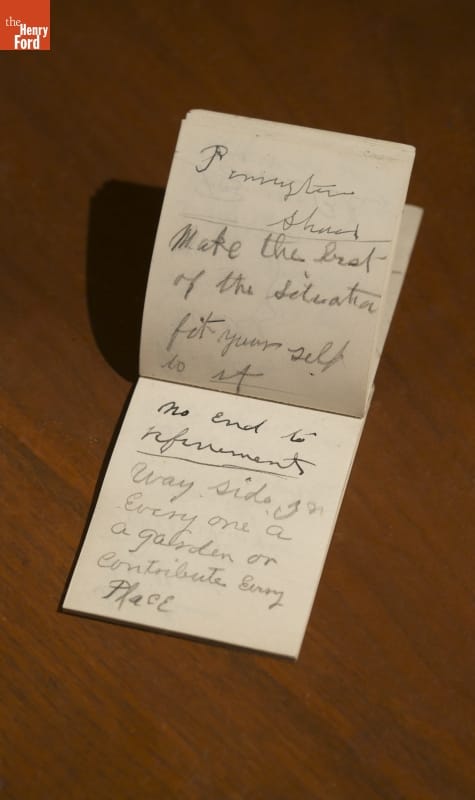 the
Henry
Ford
Make the best
of the situation
fit your self
to it
no end to
refinements
Way side
Every one a
a garden or
contribute Every
Place